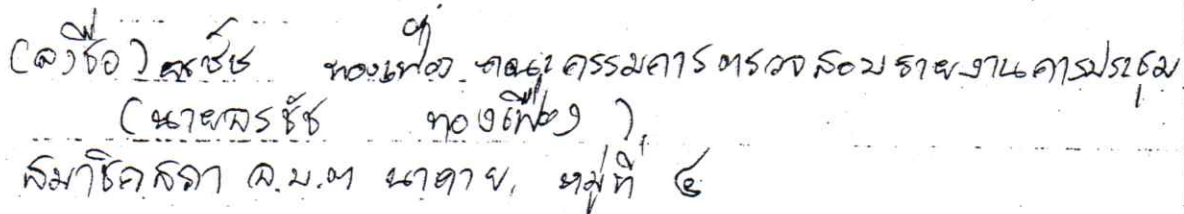 (ลงชื่อ) อรชัช ทองเฟื่อง คณะกรรมการตรวจสอบรายงานการประชุม
(นายอรชัช ทองเฟื่อง)
สมาชิกสภา อ.บ.ต นาคาย. หมู่ที่ ๔